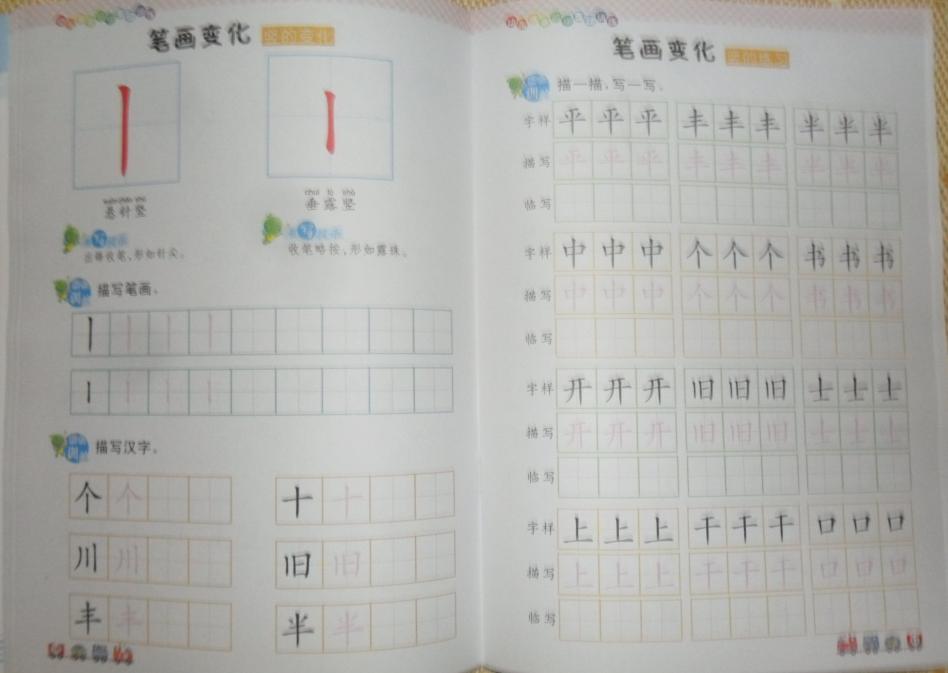 笔画变化 竖的变化
悬针竖
垂露竖
出锋收笔，形如针尖。
收笔略按，形如露珠。
描写笔画。
描写汉字。
个 个
十 十
川 川
旧 旧
丰 丰
半 半
笔画变化 竖的练习
描一描，写一写。
字样 平 平 平 丰 丰 丰 半 半 半
描写 平 平 平 丰 丰 丰 半 半 半
临写
字样 中 中 中 个 个 个 书 书 书
描写 中 中 中 个 个 个 书 书 书
临写
字样 开 开 开 旧 旧 旧 士 士 士
描写 开 开 开 旧 旧 旧 士 士 士
临写
字样 上 上 上 干 干 干 口 口 口
描写 上 上 上 干 干 干 口 口 口
临写